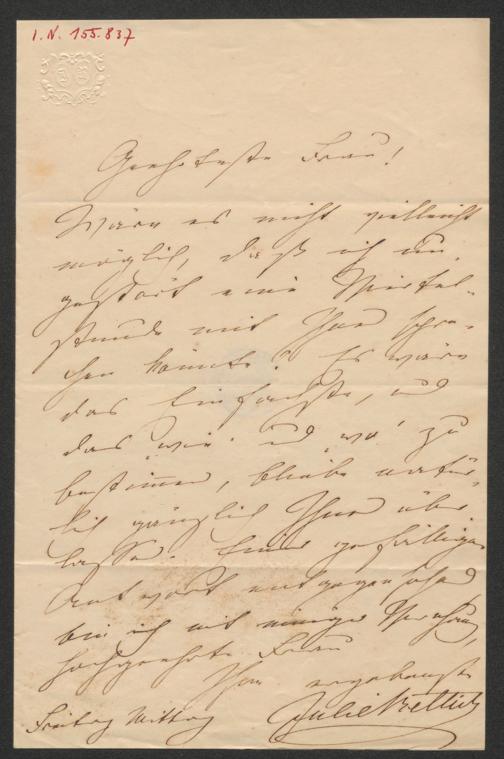 I.N. 155.837
Geehrteste Frau!
Wäre es nicht vielleicht
möglich, daß ich un¬
gestört eine Viertel¬
stunde mit Ihnen spre¬
chen könnte? Es wäre
das Einfachste, und
das „wie" und „wo" zu
bestimmen, bliebe natür¬
lich gänzlich Ihnen über
lassen. Einer gefälligen
Antwort entgegensehend
bin ich mit inniger Verehrung,
hochgeehrte Frau
Ihre ergebenste
Julie Rettich
Freitag Mittag